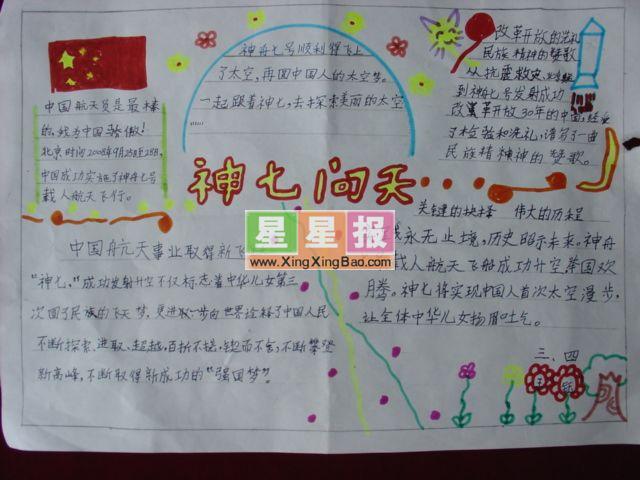 神舟七号顺利得飞上
了太空,再圆中国人的太空梦。
一起跟着神七,去探索美丽的太空
改革开放的洗礼
民族精神的赞歌
从抗震救灾
到神舟七号发射成功
改革开放30年的中国,经受
了检验和洗礼,谱写了一曲
民族精神的赞歌。
中国航天员是最棒
的,我为中国骄傲!
北京时间2008年9月25日至28日,
中国成功实施了神舟七号
载人航天飞行。
神七问天
星星报
www.XingXingBao.com
关键的抉择 伟大的历程
永无止境,历史昭示未来。神舟
载人航天飞船成功升空举国欢
腾。神七将实现中国人首次太空漫步,
让全体中华儿女扬眉吐气。
中国航天事业取得新飞
“神七”成功发射升空不仅标志着中华儿女第三
次圆了民族的飞天梦,更进一步向世界诠释了中国人民
不断探索、进取、超越,百折不挠,锲而不舍,不断攀登
新高峰,不断取得新成功的“强国梦”。
三、四